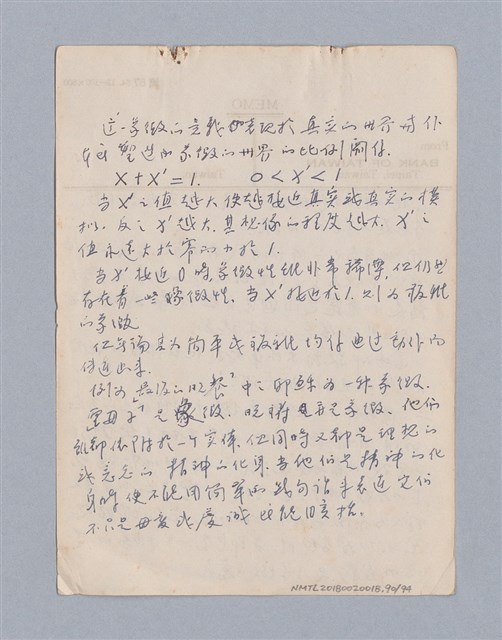 這一象徵的定義如表現於真實的世界與作
者所塑造的象徵的世界的比例關係.
X + X' = 1.  0 < X' < 1
當 X' 之值越大便越接近真實或真實的模
擬. 反之 X' 越大. 其想像的程度越大. X' 之
值永遠大於零而小於 1.
當 X' 接近 0 時, 象徵性雖非常稀薄, 但仍然
存在着一些象徵性. 當 X' 接近於 1. 則為
的象徵
但無論其為簡單或複雜均係通過動作而
傳達出來.
例如「最後的晚餐」中之耶穌為一種象徵.
聖母子」是象徵. 也是象徵. 他們
雖都依附於一个实体, 但同時又都是理想的
或意念的精神的化身. 當他們是精神的化
身時, 便不能用簡單的語句來表達定们
不只是母愛或虔誠所能
NMTL20180020018.90/94
MEMO
BANK OF TAIWAN